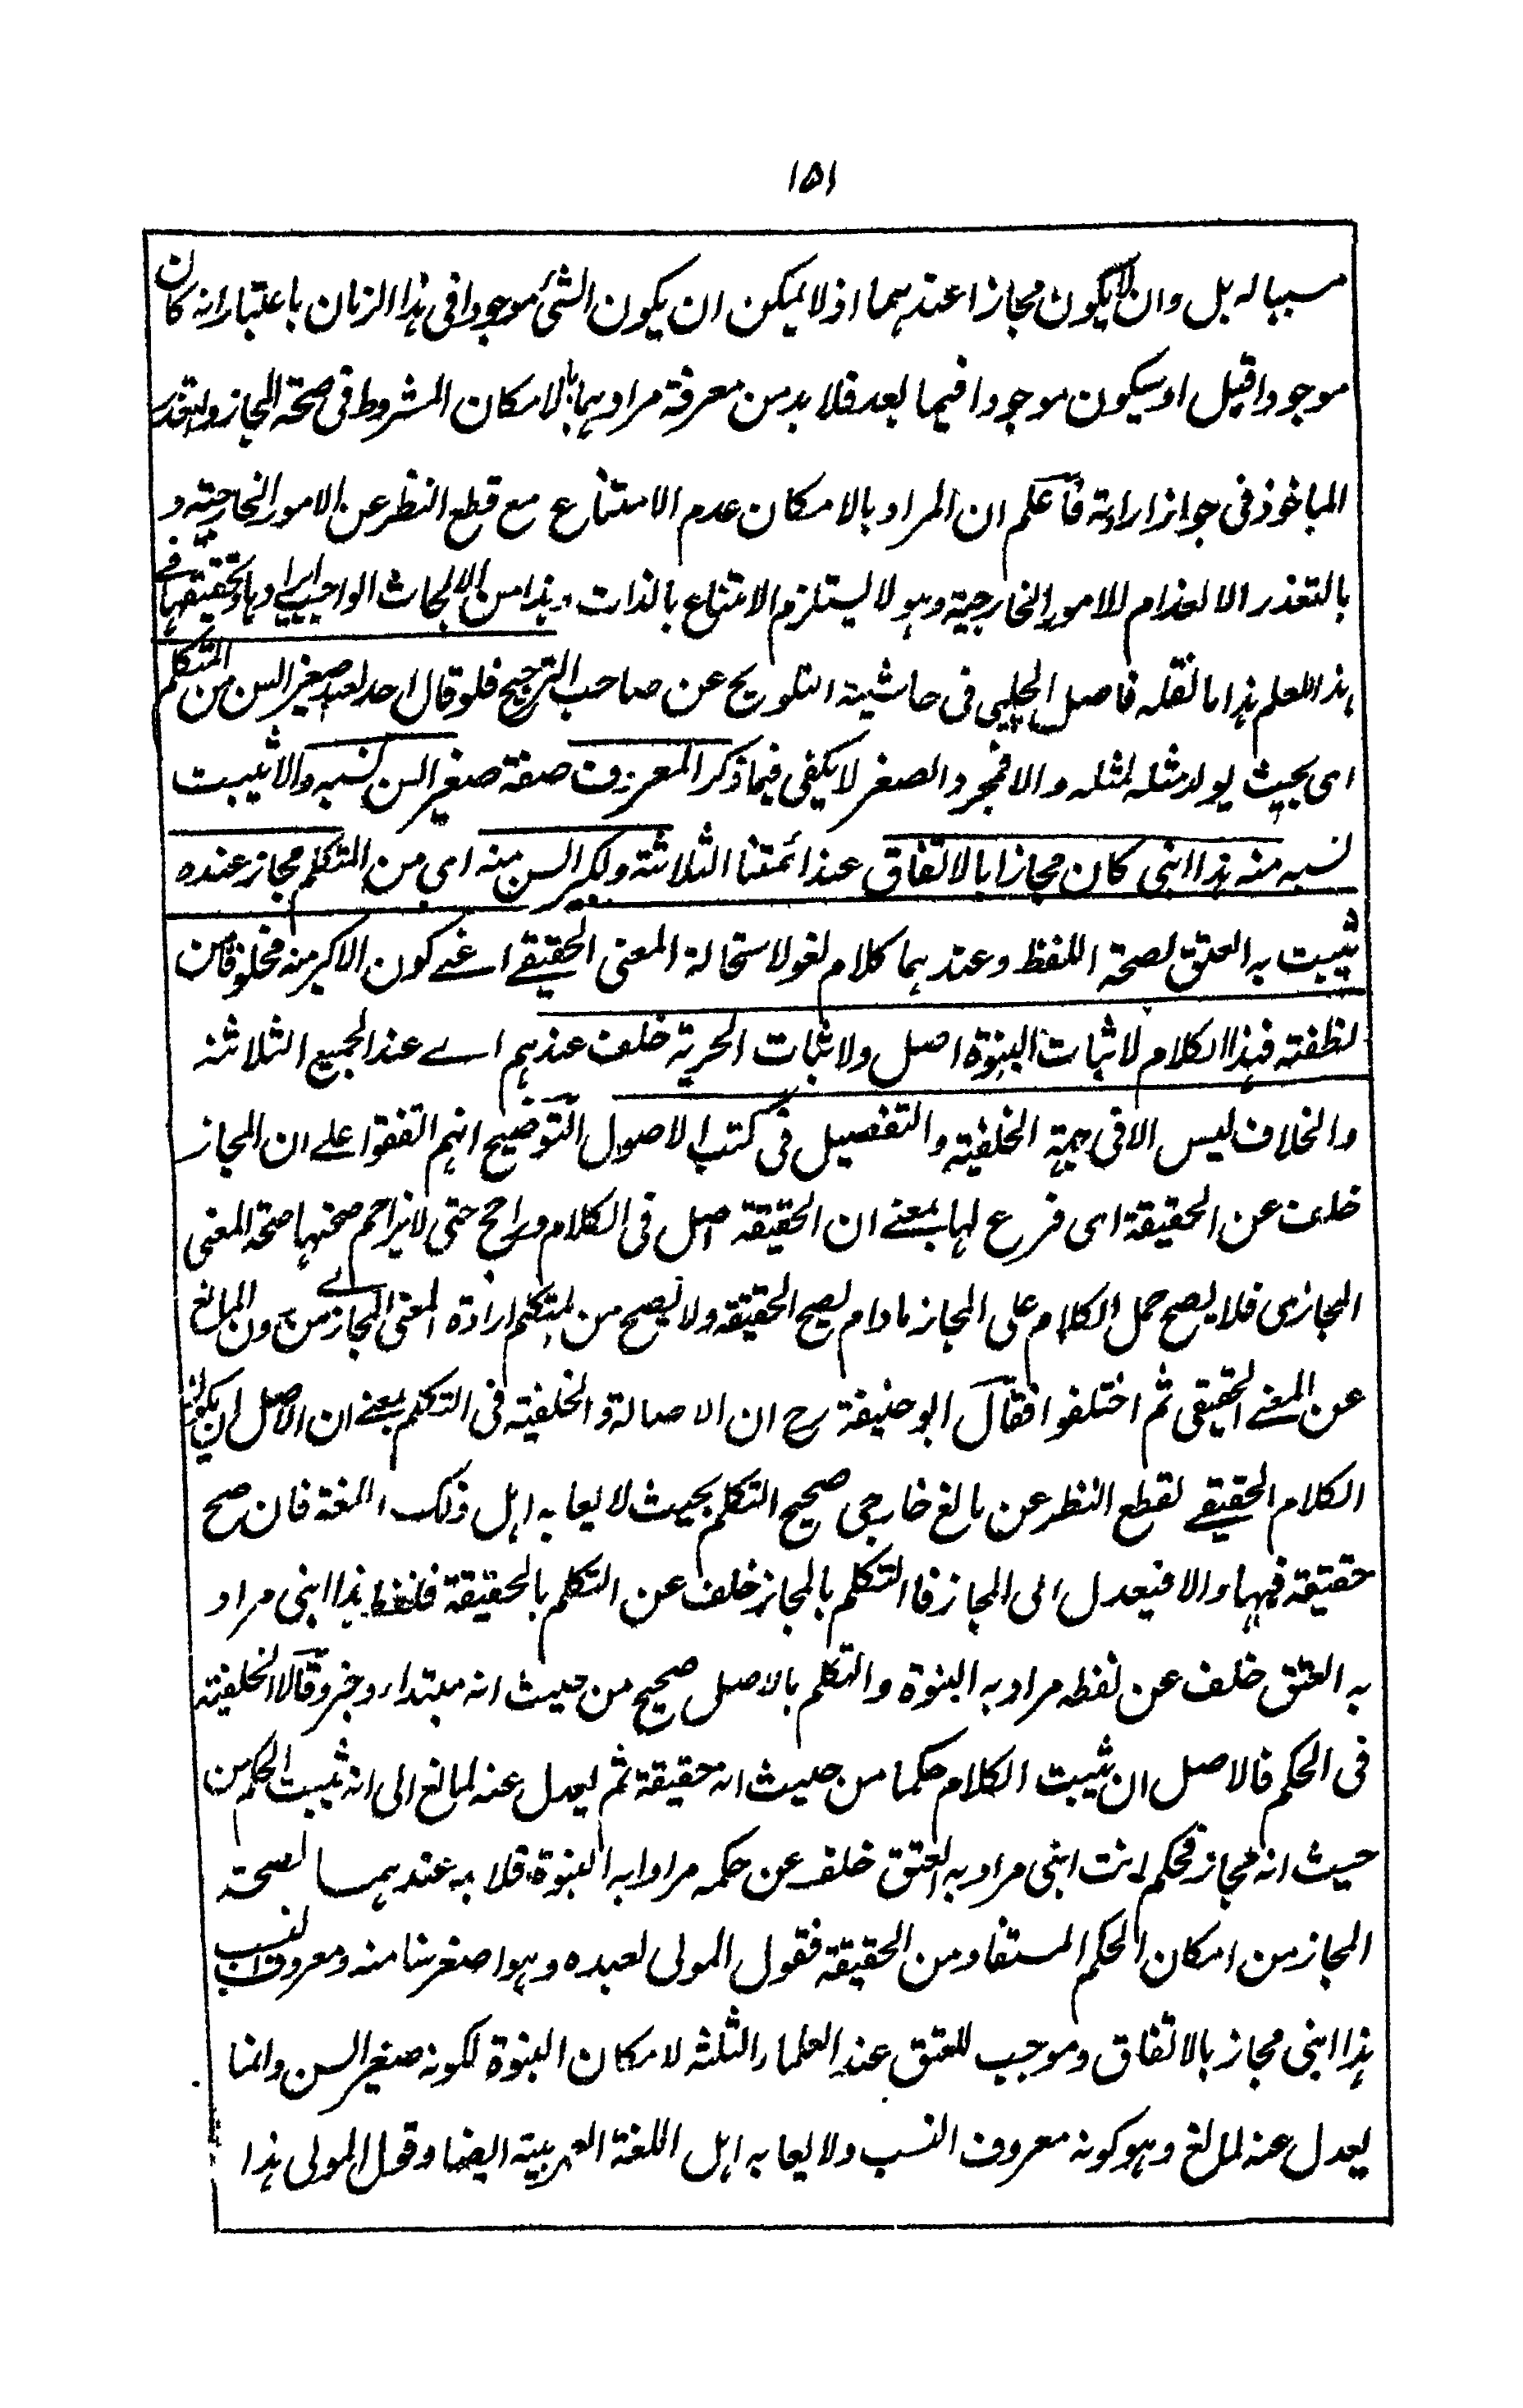 ١٥١
مسبباله بل وان لا يكون مجازا عندهما اذ لا يمكن ان يكون الشئ موجودا فى هذا الزمان باعتبار انه كان
موجودا قبل او سيكون موجودا فيما بعد فلا بد من معرفة مرادهما بالامكان المشروط فى صحة المجاز والتعذر
الماخوذ فى جواز ارادته فاعلم ان المراد بالامكان عدم الامتناع مع قطع النظر عن الامور الخارجية و
بالتعذر الانعدام للامور الخارجية وهو لا يستلزم الامتناع بالذات وهذا من الابحاث الواجب ايرادها وتحقيقها فے
هذا المعلم هذا ما نقله فاضل الچلپى فى حاشية التلويح عن صاحب الترجيح فلو قال احد لعبد صغير السن من المتكلم
اى بحيث يولد مثله لمثله والا فمجرد الصغر لا يكفى فيما ذكر المعروف صفة صغير السن نسبه والا يثبت
نسبه منه هذا ابنى كان مجازا بالاتفاق عند ائمتنا الثلاثة ولكبير السن منه اى من المتكلم مجاز عنده
يثبت به العتق لصحة اللفظ وعندهما كلام لغو لاستحالة المعنى الحقيقے اعنے كون الاكبر منه مخلوقا من
نطفته فهذا الكلام لاثبات البنوة اصل ولاثبات الحرية خلف عندهم اے عند الجميع الثلاثة
والخلاف ليس الا فى جهة الخلفية والتفصيل فى كتب الاصول التوضيح انهم اتفقوا علے ان المجاز
خلف عن الحقيقة اى فرع لها بمعنے ان الحقيقة اصل فى الكلام وراجح حتى لا يزاحم صحتها صحة المعنى
المجازى فلا يصح حمل الكلام على المجاز مادام يصح الحقيقة ولا يصح من المتكلم ارادة المعنى المجازے من دون المانع
عن المعنے الحقيقى ثم اختلفوا فقال ابو حنيفة رح ان الاصالة والخلفية فى التكلم بمعنے ان الاصل ان يكون
الكلام الحقيقے لقطع النظر عن مانع خارجى صحيح التكلم بحيث لا يعابه اهل ذلك اللغة فان صح
حقيقة فبها والا فيعدل الى المجاز فالتكلم بالمجاز خلف عن التكلم بالحقيقة فلفظ هذا ابنى مراد
به العتق خلف عن لفظه مراد به البنوة والتكلم بالاصل صحيح من حيث انه مبتداء وخبر وقالا الخلفية
فى الحكم فالاصل ان يثبت الكلام حكما من حيث انه حقيقة ثم يعدل عنه لمانع الى انه يثبت الحكم من
حيث انه مجاز فحكم انت ابنى مراد به العتق خلف عن حكمه مرادا به البنوة فلا بد عندهما لصحة
المجاز من امكان الحكم المستفاد من الحقيقة فقول المولى لعبده وهو اصغر سنا منه ومعروف النسب
هذا ابنى مجاز بالاتفاق وموجب للعتق عند العلماء الثلثه لامكان البنوة لكونه صغير السن وانما
يعدل عنه لمانع وهو كونه معروف النسب ولا يعابه اهل اللغة العربية ايضا وقول المولى هذا